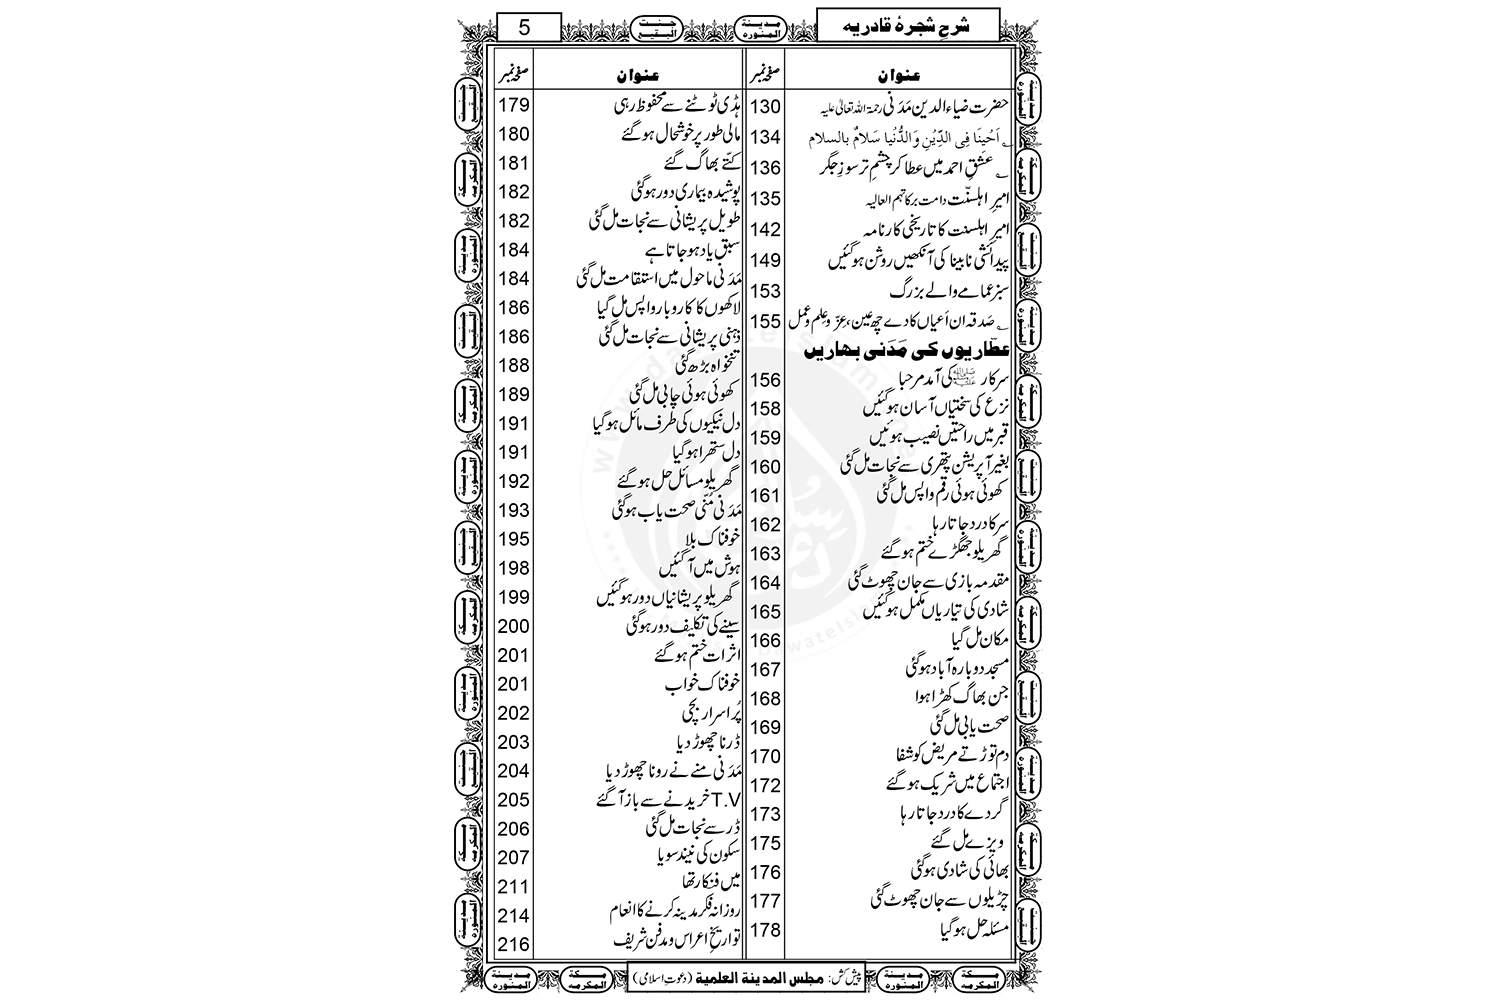 شرح شجرۂ قادریہ
مدینۃ المنورہ
جنت البقیع
5
عنوان صفحہ نمبر
حضرت ضیاء الدین مَدَنی رحمۃ اللہ تعالیٰ علیہ 130
؂ اَحْيِنَا فِی الدِّیْنِ وَالدُّنْیا سَلامٌ بالسلام 134
؂ عشقِ احمد میں عطا کر چشمِ تر سوزِ جگر 136
امیرِ اہلسنّت دامت برکاتہم العالیہ 135
امیرِ اہلسنت کا تاریخی کارنامہ 142
پیدائشی نابینا کی آنکھیں روشن ہوگئیں 149
سبز عمامے والے بزرگ 153
؂ صَدقہ ان اَعیاں کا دے چھ عین، عِزّ و عِلم و عمل 155
عطّاریوں کی مَدَنی بہاریں
سرکار ﷺ کی آمد مرحبا 156
نزع کی سختیاں آسان ہوگئیں 158
قبر میں راحتیں نصیب ہوئیں 159
بغیر آپریشن پتھری سے نجات مل گئی 160
کھوئی ہوئی رقم واپس مل گئی 161
سر کا درد جاتا رہا 162
گھریلو جھگڑے ختم ہوگئے 163
مقدمہ بازی سے جان چھوٹ گئی 164
شادی کی تیاریاں مکمل ہوگئیں 165
مکان مل گیا 166
مسجد دوبارہ آباد ہوگئی 167
جن بھاگ کھڑا ہوا 168
صحت یابی مل گئی 169
دم توڑتے مریض کو شفا 170
اجتماع میں شریک ہوگئے 172
گردے کا درد جاتا رہا 173
ویزے مل گئے 175
بھائی کی شادی ہوگئی 176
چڑیلوں سے جان چھوٹ گئی 177
مسئلہ حل ہوگیا 178
عنوان صفحہ نمبر
ہڈی ٹوٹنے سے محفوظ رہی 179
مالی طور پر خوشحال ہوگئے 180
کتّے بھاگ گئے 181
پوشیدہ بیماری دور ہوگئی 182
طویل پریشانی سے نجات مل گئی 182
سبق یاد ہوجاتا ہے 184
مَدَنی ماحول میں استقامت مل گئی 184
لاکھوں کا کاروبار واپس مل گیا 186
ذہنی پریشانی سے نجات مل گئی 186
تنخواہ بڑھ گئی 188
کھوئی ہوئی چابی مل گئی 189
دل نیکیوں کی طرف مائل ہوگیا 191
دل ستھرا ہوگیا 191
گھریلو مسائل حل ہوگئے 192
مَدَنی مُنّی صحت یاب ہوگئی 193
خوفناک بلا 195
ہوش میں آگئیں 198
گھریلو پریشانیاں دور ہوگئیں 199
سینے کی تکلیف دور ہوگئی 200
اثرات ختم ہوگئے 201
خوفناک خواب 201
پُراسرار بچی 202
ڈرنا چھوڑ دیا 203
مَدَنی منے نے رونا چھوڑ دیا 204
T.V خریدنے سے باز آگئے 205
ڈر سے نجات مل گئی 206
سکون کی نیند سویا 207
میں فنکار تھا 211
روزانہ فکرِ مدینہ کرنے کا انعام 214
تواریخِ اعراس و مدفن شریف 216
پیش کش: مجلس المدینۃ العلمیۃ (دعوتِ اسلامی)